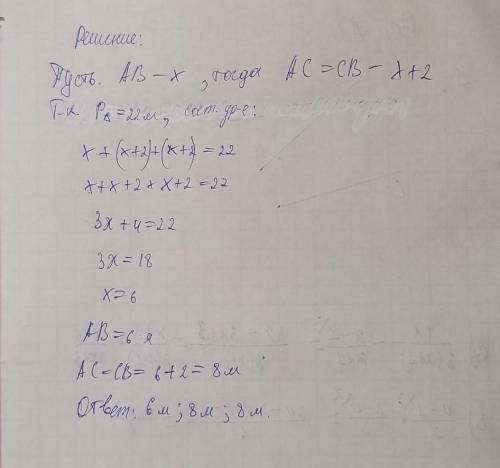 Решение:
Пусть. AB – x , тогда AC = CB – x+2
Т-к P△ = 22 м, сост. ур-е:
x + (x+2)+(x+2) = 22
x+x+2+x+2=22
3x+4=22
3x=18
x=6
AB=6 м
AC=CB= 6+2=8 м
Ответ: 6 м ; 8 м ; 8 м.